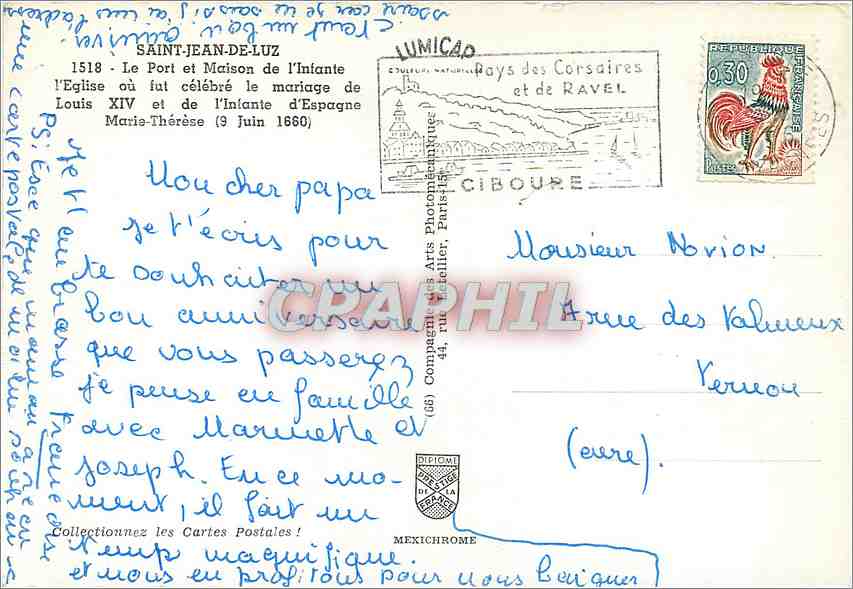 SAINT-JEAN-DE-LUZ
1518 - Le Port et Maison de l'Infante
l'Eglise où fut célébré le mariage de
Louis XIV et de l'Infante d'Espagne
Marie-Thérèse (9 Juin 1660)
LUMICAP
COULEURS NATURELLES
Pays des Corsaires
et de RAVEL
CIBOURE
REPUBLIQUE FRANÇAISE
0,30
POSTES
Mon cher papa
je t'écris pour
te souhaiter un
bon anniversaire
que vous passerez
je pense en famille
avec Marinette et
Joseph. En ce mo-
ment, il fait un
temp magnifique.
et nous en profitons pour nous baigner
Je t'embrasse Françoise
PS: Esce que maman a reçu
une carte postale, de moi un
c'était un bon anniver-
ssaire car je ne sais si j'ai mis l'adresse
Monsieur Novion
7 rue des Valmeux
Vernon
(eure).
(66) Compagnie des Arts Photomécaniques
44, rue Letellier, Paris-15e
CPAPHIL
DIPLOME
PRESTIGE
DE LA
FRANCE
Collectionnez les Cartes Postales !
MEXICHROME